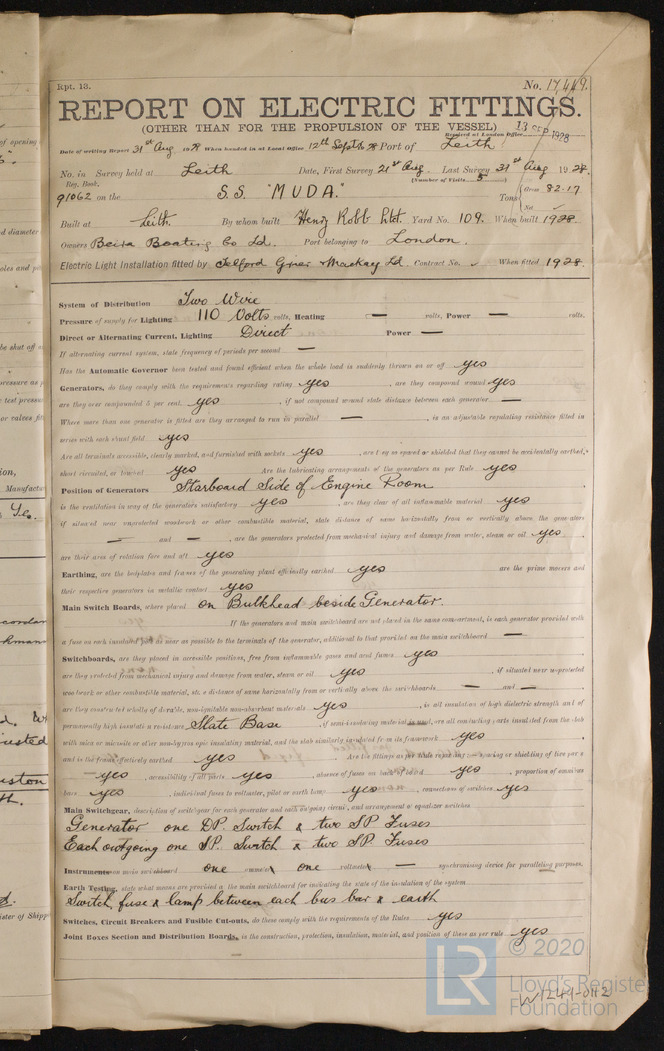 Rpt. 13. No. 17,449.
REPORT ON ELECTRIC FITTINGS.
(OTHER THAN FOR THE PROPULSION OF THE VESSEL) 13 SEP 1928
Received at London Office
Date of writing Report 31st Aug 1928 When handed in at Local Office 12th Sept 1928 Port of Leith
No. in Survey held at Leith Date, First Survey 21st Aug. Last Survey 31st Aug 1928.
Reg. Book. (Number of Visits 5)
91062 on the S.S. "MUDA." Tons { Gross 82.17
Net
Built at Leith. By whom built Henry Robb Ltd. Yard No. 109. When built 1928
Owners Beira Boating Co Ld. Port belonging to London.
Electric Light Installation fitted by Telford Grier & Mackay Ld. Contract No. When fitted 1928.
System of Distribution Two Wire
Pressure of supply for Lighting 110 Volts volts, Heating — volts, Power — volts.
Direct or Alternating Current, Lighting Direct Power —
If alternating current system, state frequency of periods per second —
Has the Automatic Governor been tested and found efficient when the whole load is suddenly thrown on or off yes
Generators, do they comply with the requirements regarding rating yes, are they compound wound yes
are they over compounded 5 per cent. yes, if not compound wound state distance between each generator —
Where more than one generator is fitted are they arranged to run in parallel —, is an adjustable regulating resistance fitted in
series with each shunt field yes
Are all terminals accessible, clearly marked, and furnished with sockets yes, are they so spaced or shielded that they cannot be accidentally earthed,
short circuited, or touched yes Are the lubricating arrangements of the generators as per Rule yes
Position of Generators Starboard Side of Engine Room
is the ventilation in way of the generators satisfactory yes, are they clear of all inflammable material yes
if situated near unprotected woodwork or other combustible material, state distance of same horizontally from or vertically above the generators
— and —, are the generators protected from mechanical injury and damage from water, steam or oil yes.
are their axes of rotation fore and aft yes
Earthing, are the bedplates and frames of the generating plant efficiently earthed yes are the prime movers and
their respective generators in metallic contact yes
Main Switch Boards, where placed on Bulkhead beside Generator.
If the generators and main switchboard are not placed in the same compartment, is each generator provided with
a fuse on each insulated pole as near as possible to the terminals of the generator, additional to that provided on the main switchboard —
Switchboards, are they placed in accessible positions, free from inflammable gases and acid fumes yes
are they protected from mechanical injury and damage from water, steam or oil yes, if situated near unprotected
woodwork or other combustible material, state distance of same horizontally from or vertically above the switchboards — and —
are they constructed wholly of durable, non-ignitable non-absorbent materials yes, is all insulation of high dielectric strength and of
permanently high insulation resistance Slate Base, if semi-insulating material is used, are all conducting parts insulated from the slab
with mica or micanite or other non-hygroscopic insulating material, and the slab similarly insulated from its framework yes
and is the frame effectively earthed yes Are the fittings as per Rule regarding:— spacing or shielding of live parts
yes, accessibility of all parts yes, absence of fuses on back of board yes, proportion of omnibus
bars yes, individual fuses to voltmeter, pilot or earth lamp yes, connections of switches yes
Main Switchgear, description of switchgear for each generator and each outgoing circuit, and arrangement of equalizer switches
Generator one DP. Switch & two SP Fuses
Each outgoing one SP. Switch & two SP. Fuses
Instruments on main switchboard one ammeter one voltmeter — synchronising device for paralleling purposes.
Earth Testing, state what means are provided at the main switchboard for indicating the state of the insulation of the system
Switch, fuse & lamp between each bus bar & earth
Switches, Circuit Breakers and Fusible Cut-outs, do these comply with the requirements of the Rules yes
Joint Boxes Section and Distribution Boards, is the construction, protection, insulation, material, and position of these as per rule yes
© 2020
LR
Lloyd's Register
Foundation
W1249-0112